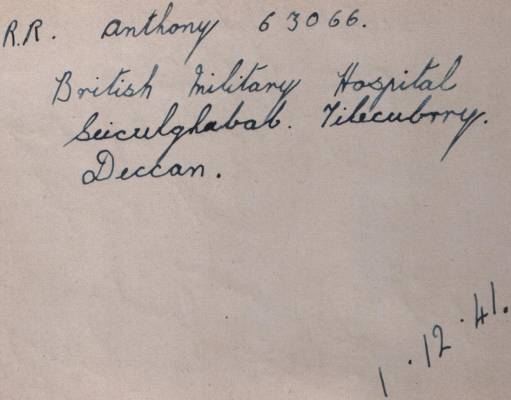 R.R. Anthony 63066.
British Military Hospital
Seiculghabab. Tilecubrry.
Deccan.
1.12.41.